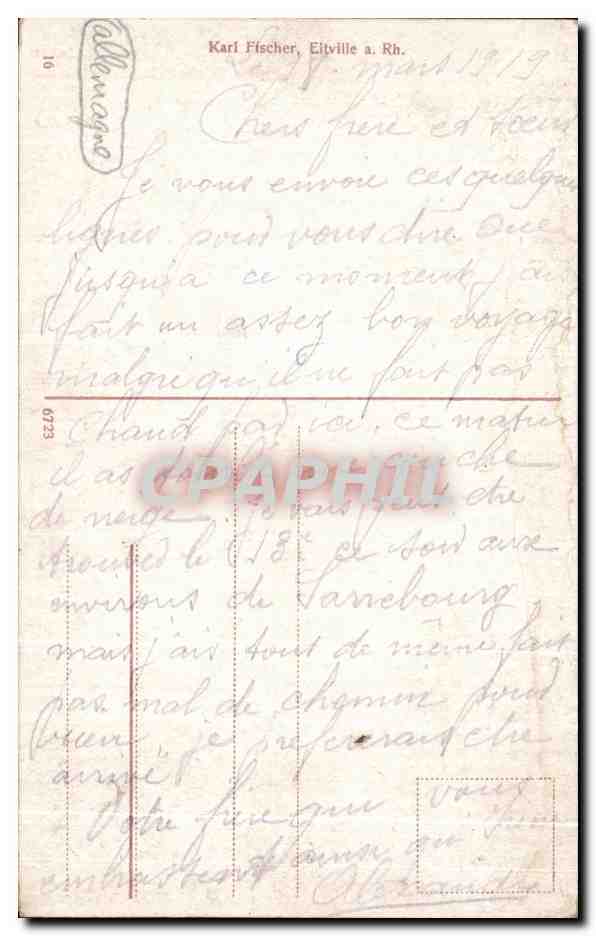 16
allemagne
Karl Fischer, Eltville a. Rh.
mars 1919
Chers frère et soeurs
Je vous envoie ces quelques
lignes pour vous dire que
jusqu'a ce moment j'ais
fait un assez bon voyage
malgré qu'il ne fait pas
6723
chaud par ici. ce matin
il as
de neige. Je vais peut etre
trouver le 13e ce soir aux
environs de Sarrebourg
mais j'ais tout de même fait
pas mal de chemin pour
je prefererais etre
arrivé
Votre frère qui vous
embrasse
CPAPHIL